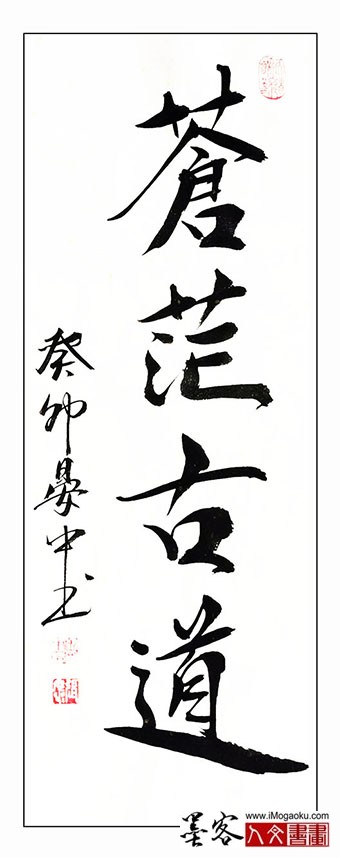 蒼茫古道
癸卯晏中书
墨客
www.iMogaoku.com
人文書畫